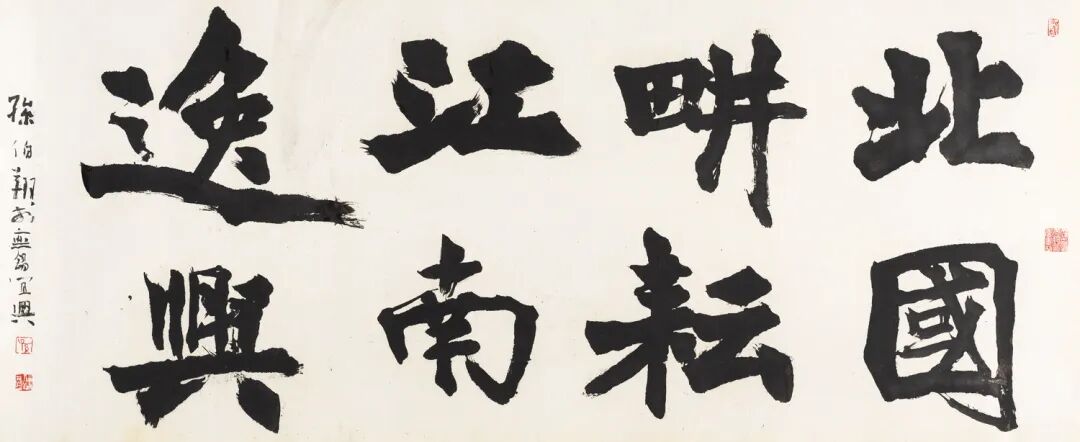 北國
畊耘
江南
逸興
孫伯翔於無錫宜興